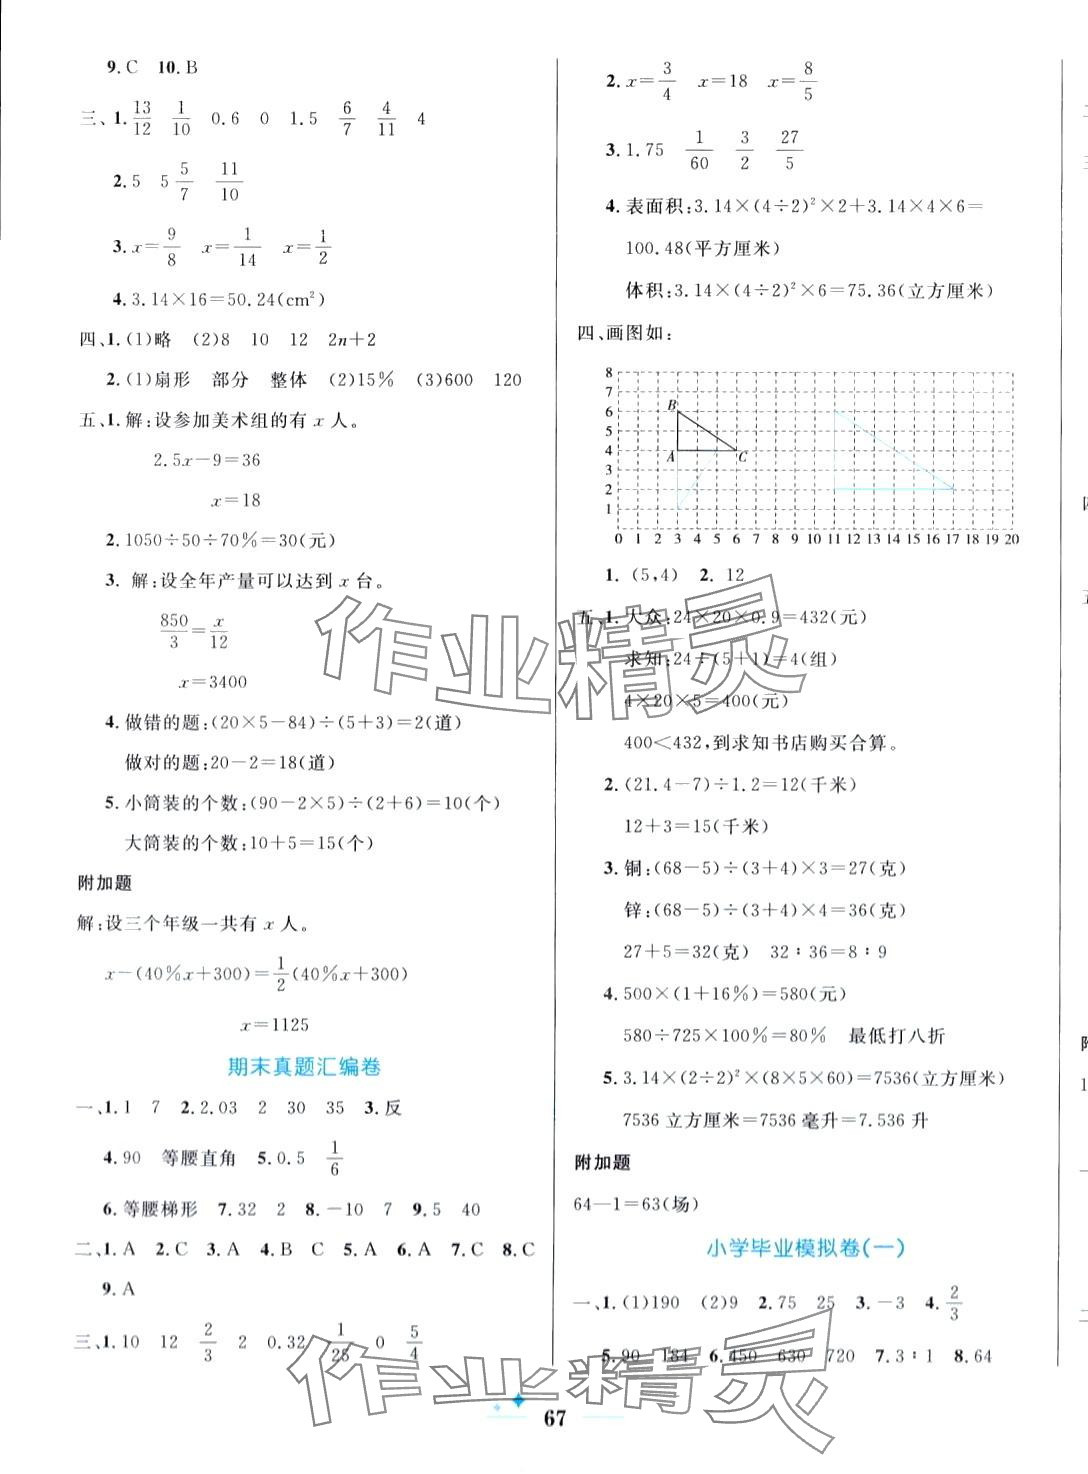 9.C 10.B
三、1.13/12 1/10 0.6 0 1.5 6/7 4/11 4
2.5 5 5/7 11/10
3.x=9/8 x=1/14 x=1/2
4.3.14×16=50.24(cm²)
四、1.(1)略 (2)8 10 12 2n+2
2.(1)扇形 部分 整体 (2)15% (3)600 120
五、1.解:设参加美术组的有 x 人。
2.5x-9=36
x=18
2.1050÷50÷70%=30(元)
3. 解:设全年产量可以达到 x 台。
850/3=x/12
x=3400
4.做错的题:(20×5-84)÷(5+3)=2(道)
做对的题:20-2=18(道)
5.小筒装的个数:(90-2×5)÷(2+6)=10(个)
大筒装的个数:10+5=15(个)
附加题
解:设三个年级一共有 x 人。
x-(40%x+300)=1/2(40%x+300)
x=1125
期末真题汇编卷
一、1.1 7 2.2.03 2 30 35 3.反
4.90 等腰直角 5.0.5 1/6
6.等腰梯形 7.32 2 8.-10 7 9.5 40
二、1.A 2.C 3.A 4.B C 5.A 6.A 7.C 8.C
9.A
三、1.10 12 2/3 2 0.32 1/25 0 5/4
2.x=3/4 x=18 x=8/5
3.1.75 1/60 3/2 27/5
4.表面积:3.14×(4÷2)²×2+3.14×4×6=
100.48(平方厘米)
体积:3.14×(4÷2)²×6=75.36(立方厘米)
四、画图如:
8
7
6
5
4
3
2
1
B
A
C
0 1 2 3 4 5 6 7 8 9 10 11 12 13 14 15 16 17 18 19 20
1. (5,4) 2. 12
五、1.大众:24×20×0.9=432(元)
求知:24÷(5+1)=4(组)
4×20×5=400(元)
400<432,到求知书店购买合算。
2.(21.4-7)÷1.2=12(千米)
12+3=15(千米)
3.铜:(68-5)÷(3+4)×3=27(克)
锌:(68-5)÷(3+4)×4=36(克)
27+5=32(克) 32∶36=8∶9
4.500×(1+16%)=580(元)
580÷725×100%=80% 最低打八折
5.3.14×(2÷2)²×(8×5×60)=7536(立方厘米)
7536立方厘米=7536毫升=7.536升
附加题
64-1=63(场)
小学毕业模拟卷(一)
一、1.(1)190 (2)9 2.75 25 3.-3 4.2/3
5.90 184 6.450 630 720 7.3∶1 8.64
67
作业精灵
作业精灵